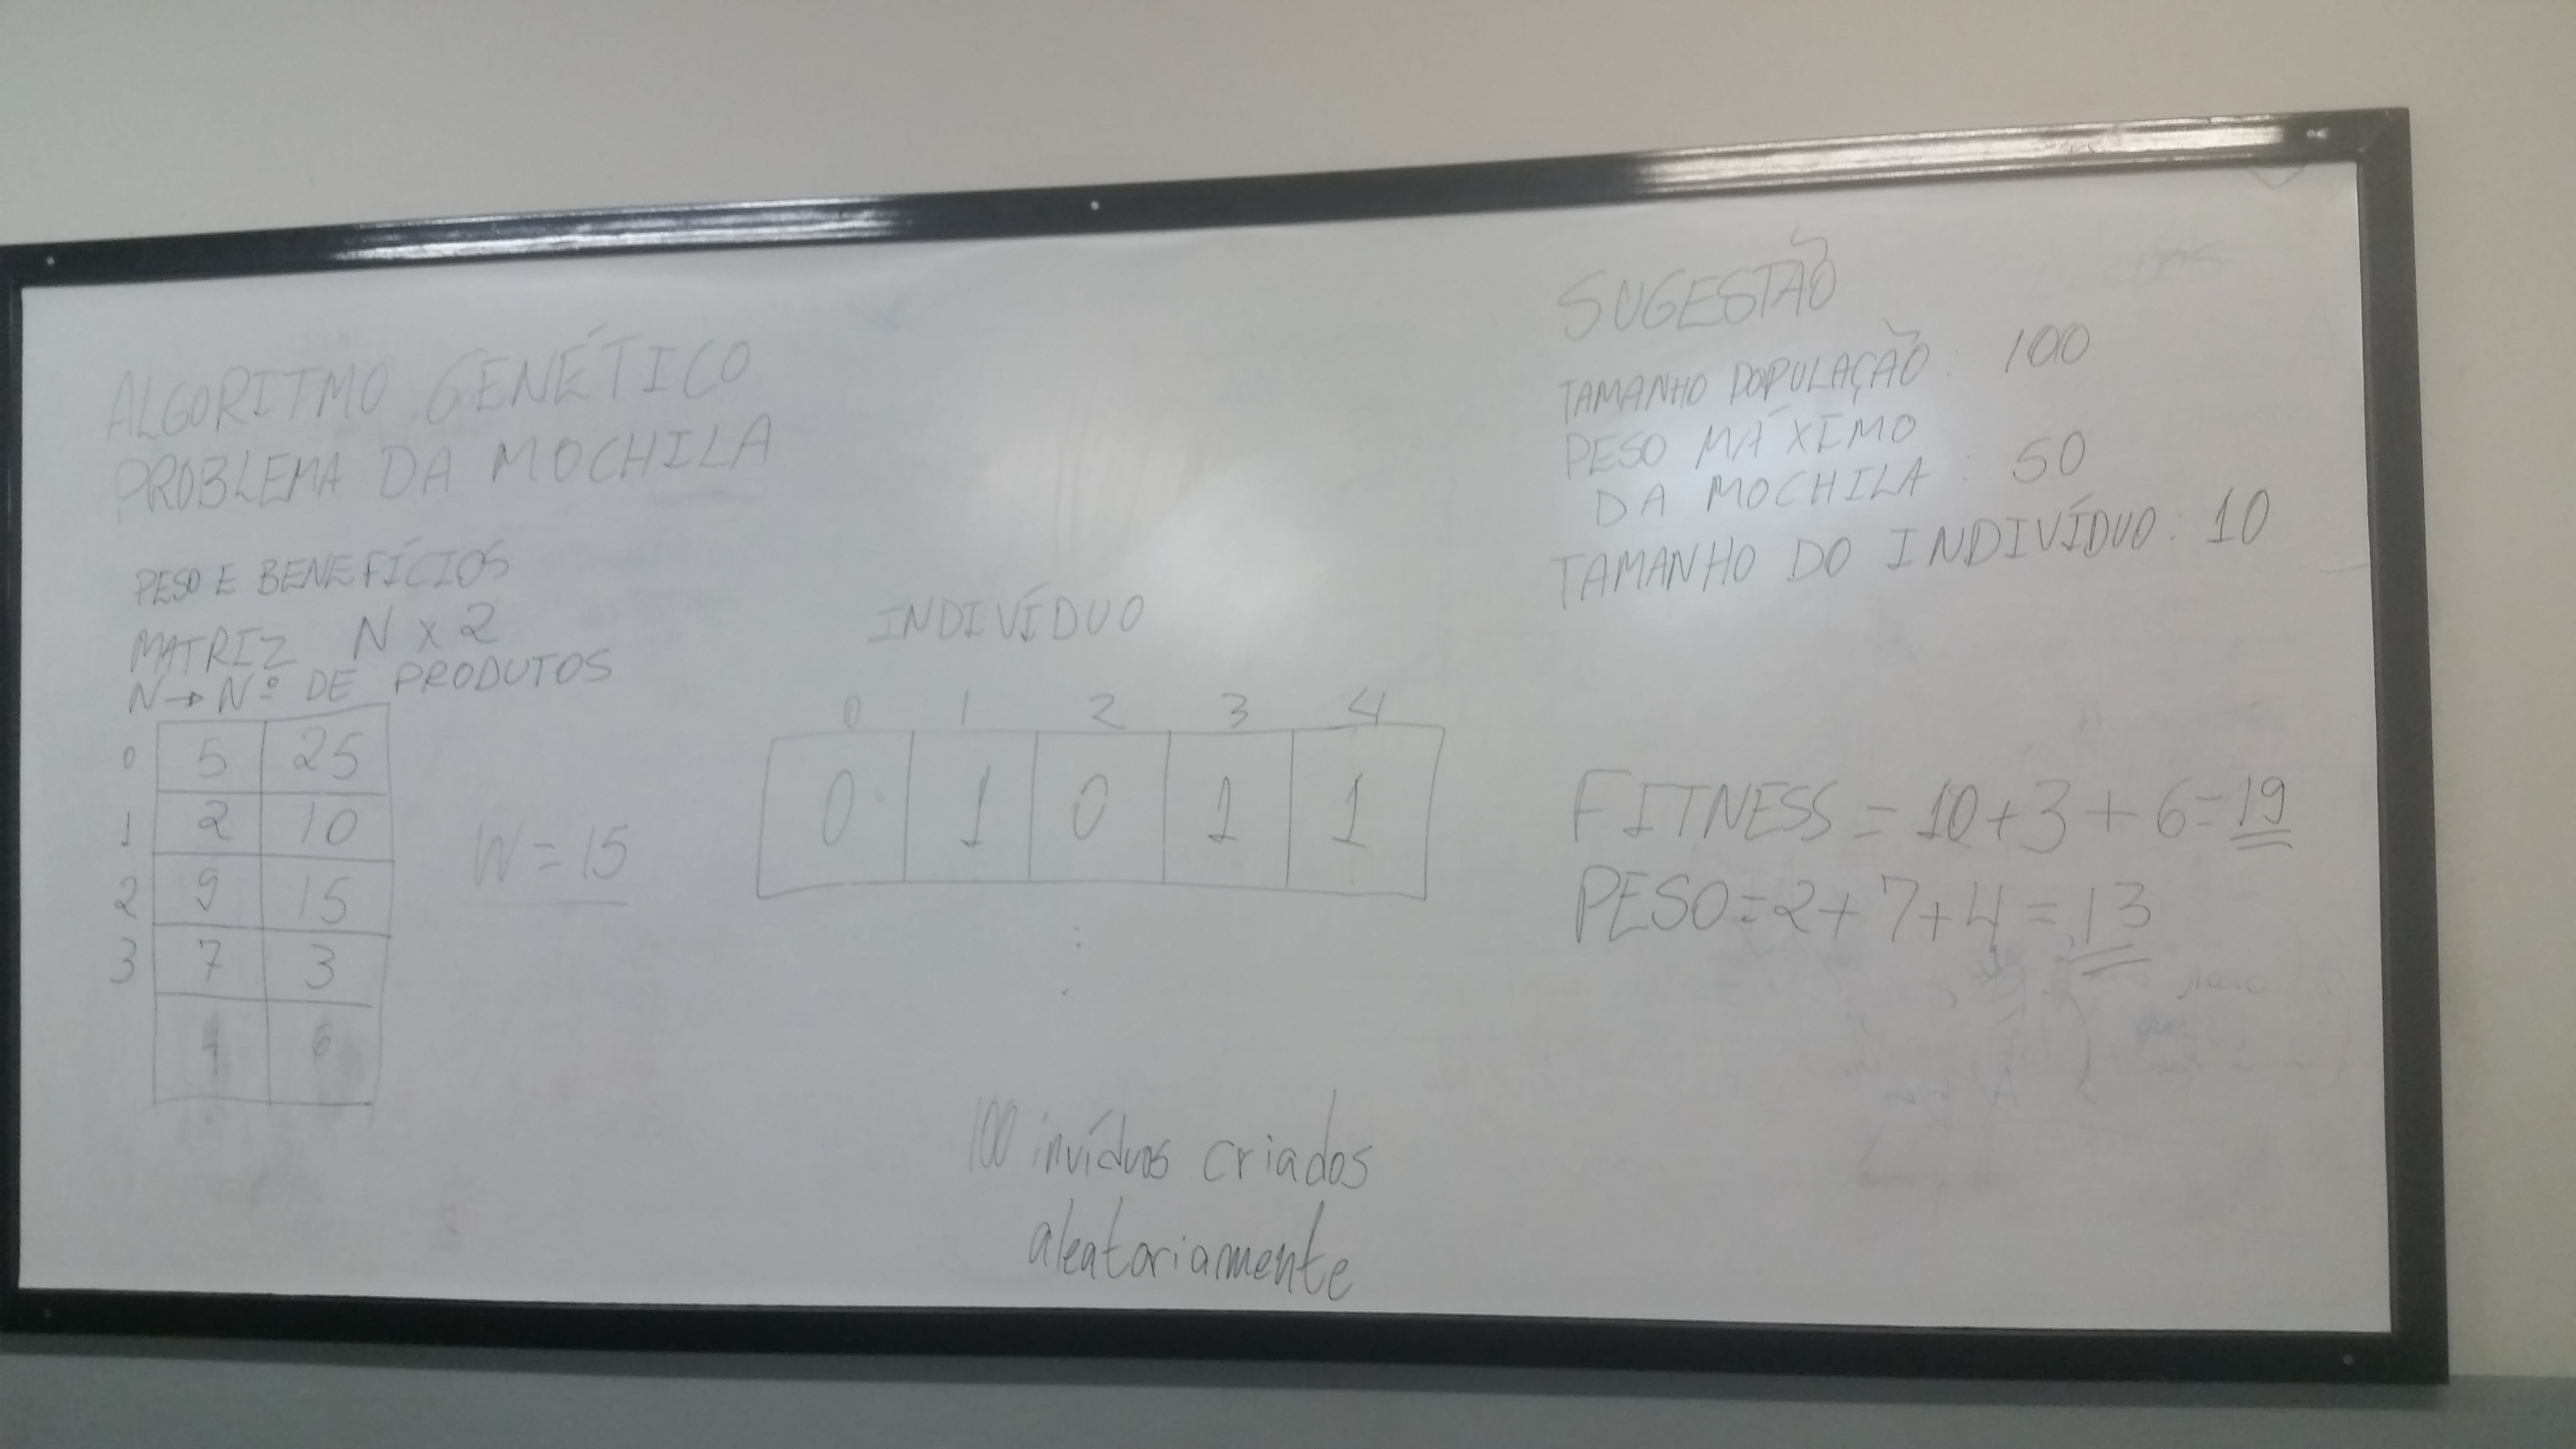 ALGORITMO GENÉTICO
PROBLEMA DA MOCHILA
PESO E BENEFÍCIOS
MATRIZ N x 2
N → Nº DE PRODUTOS
0 5 25
1 2 10
2 9 15
3 7 3
4 6
W = 15
INDIVÍDUO
0 1 2 3 4
0 1 0 1 1
100 invíduos criados
aleatoriamente
SUGESTÃO
TAMANHO POPULAÇÃO: 100
PESO MÁXIMO
DA MOCHILA: 50
TAMANHO DO INDIVÍDUO: 10
FITNESS = 10+3+6=19
PESO=2+7+4=13